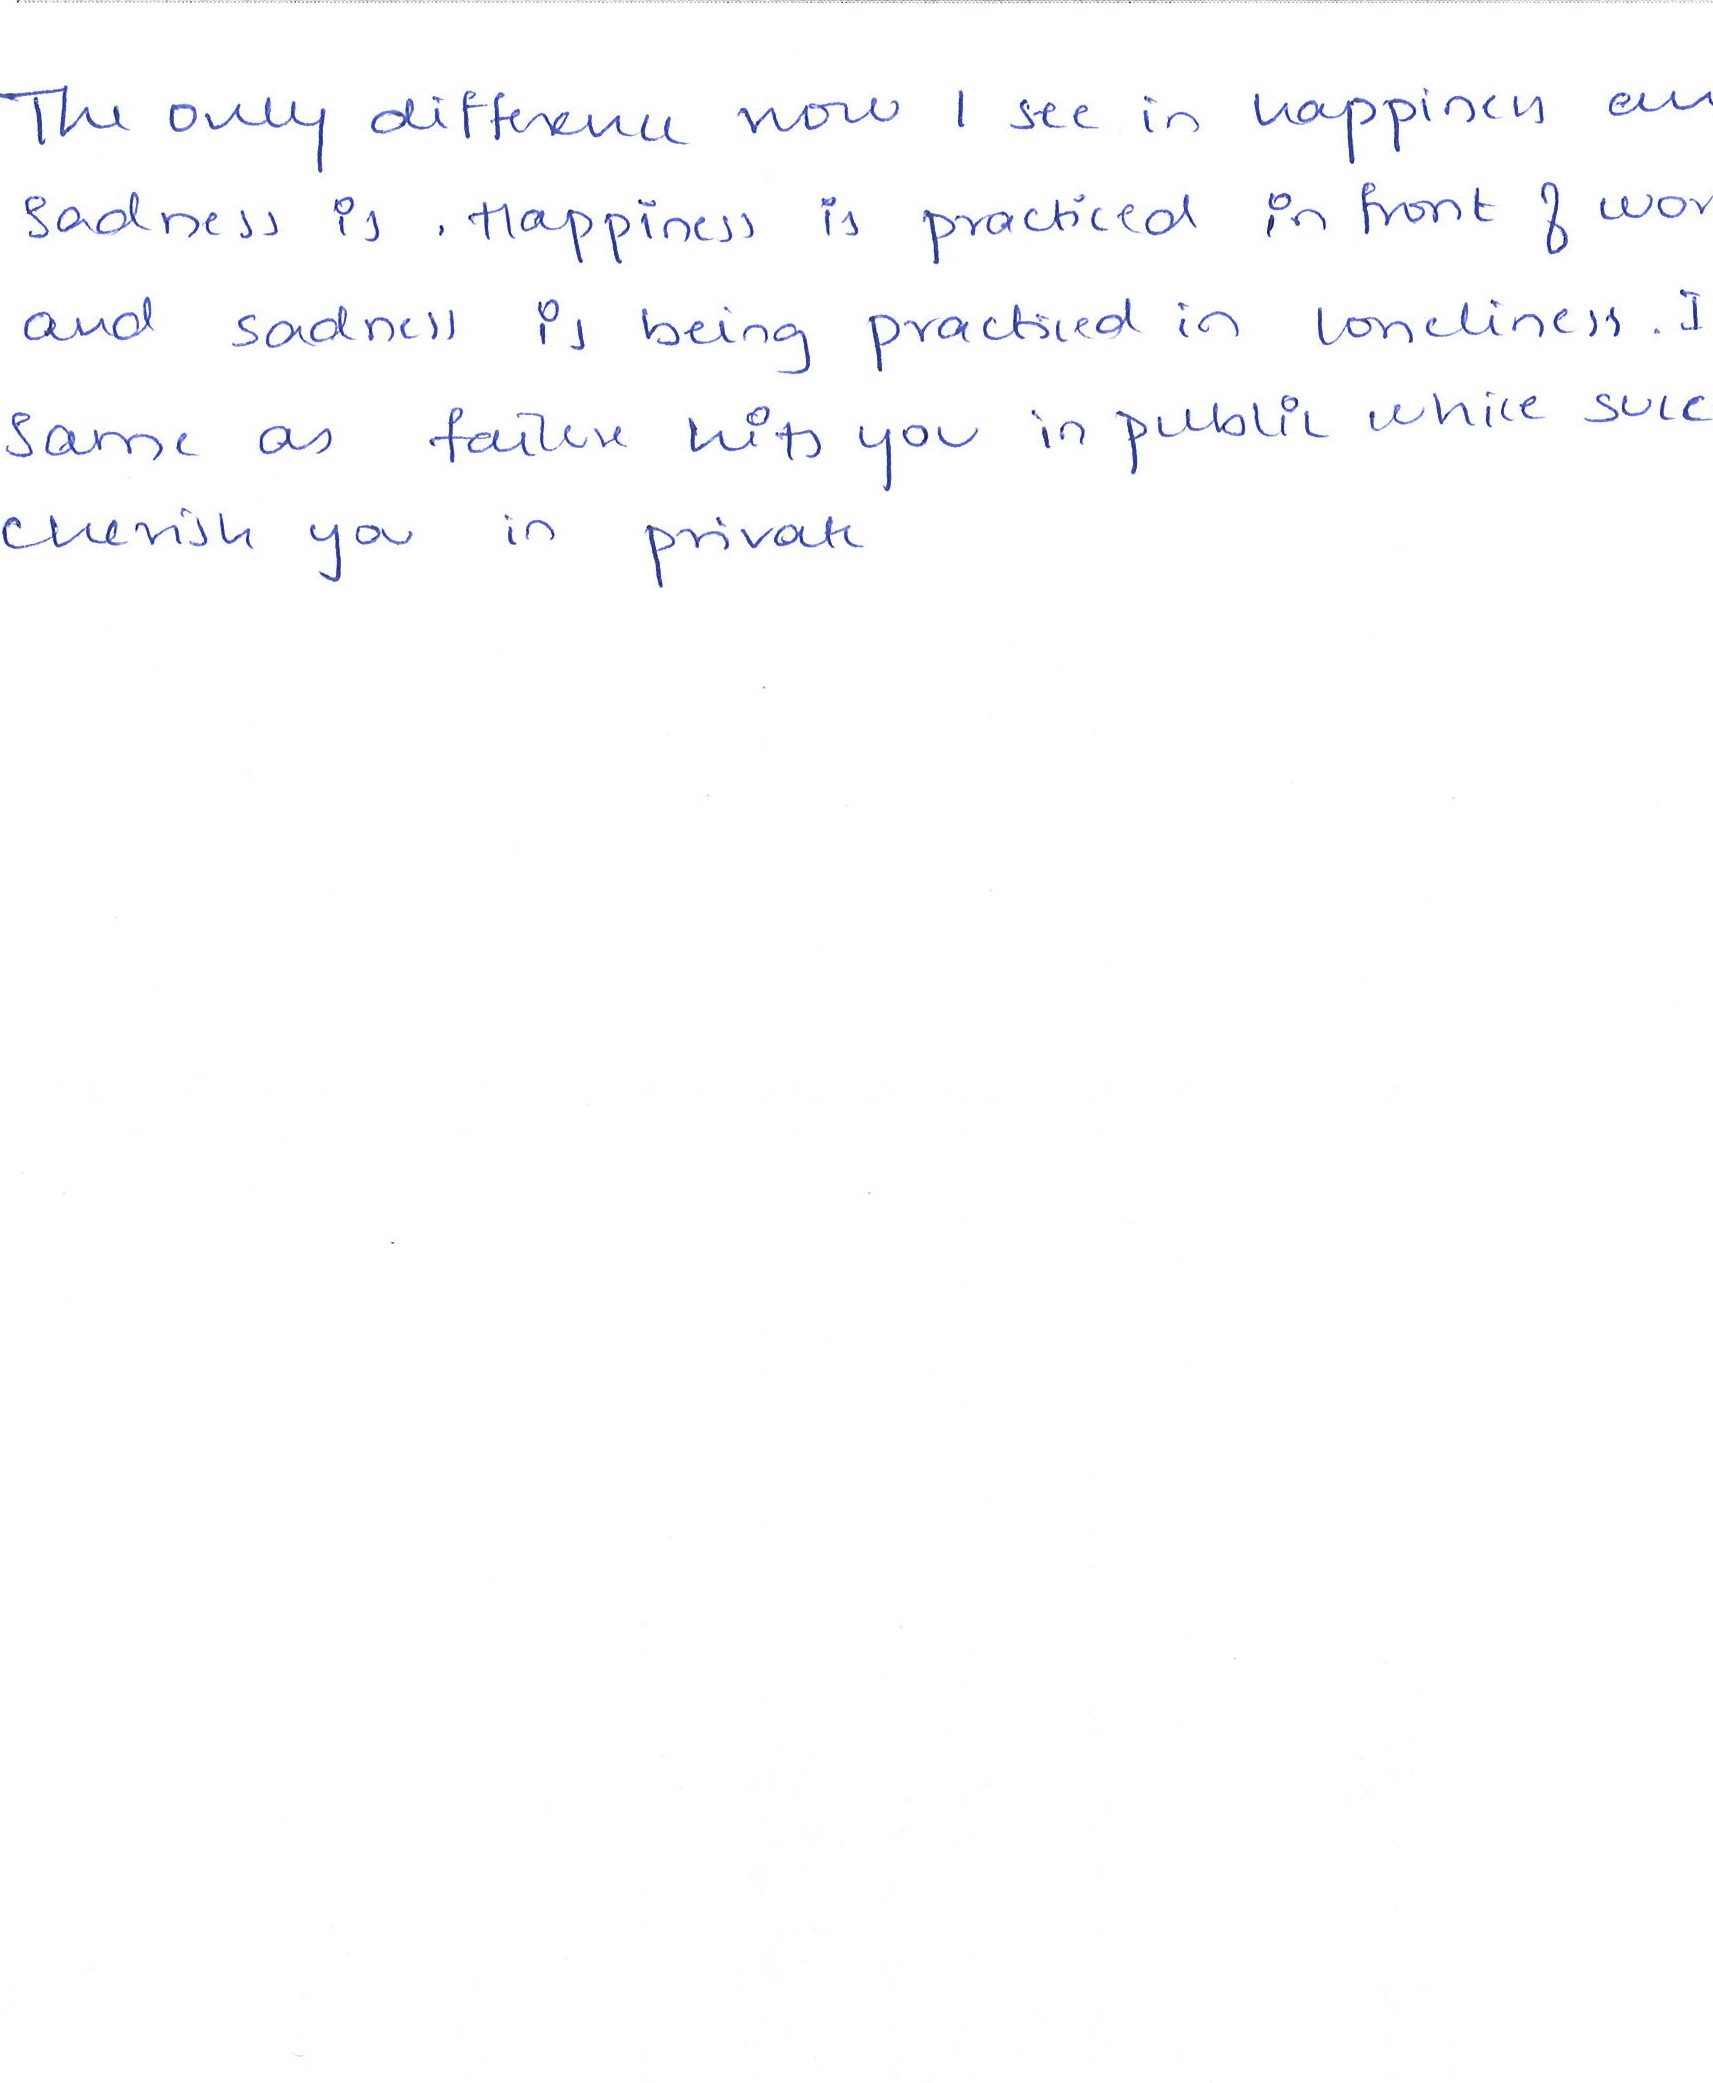 The only difference now I see in happiness an
sadness is , Happiness is practiced in front of wor
and sadness is being practiced in loneliness. I
same as failure hits you in public while succ
cherish you in private